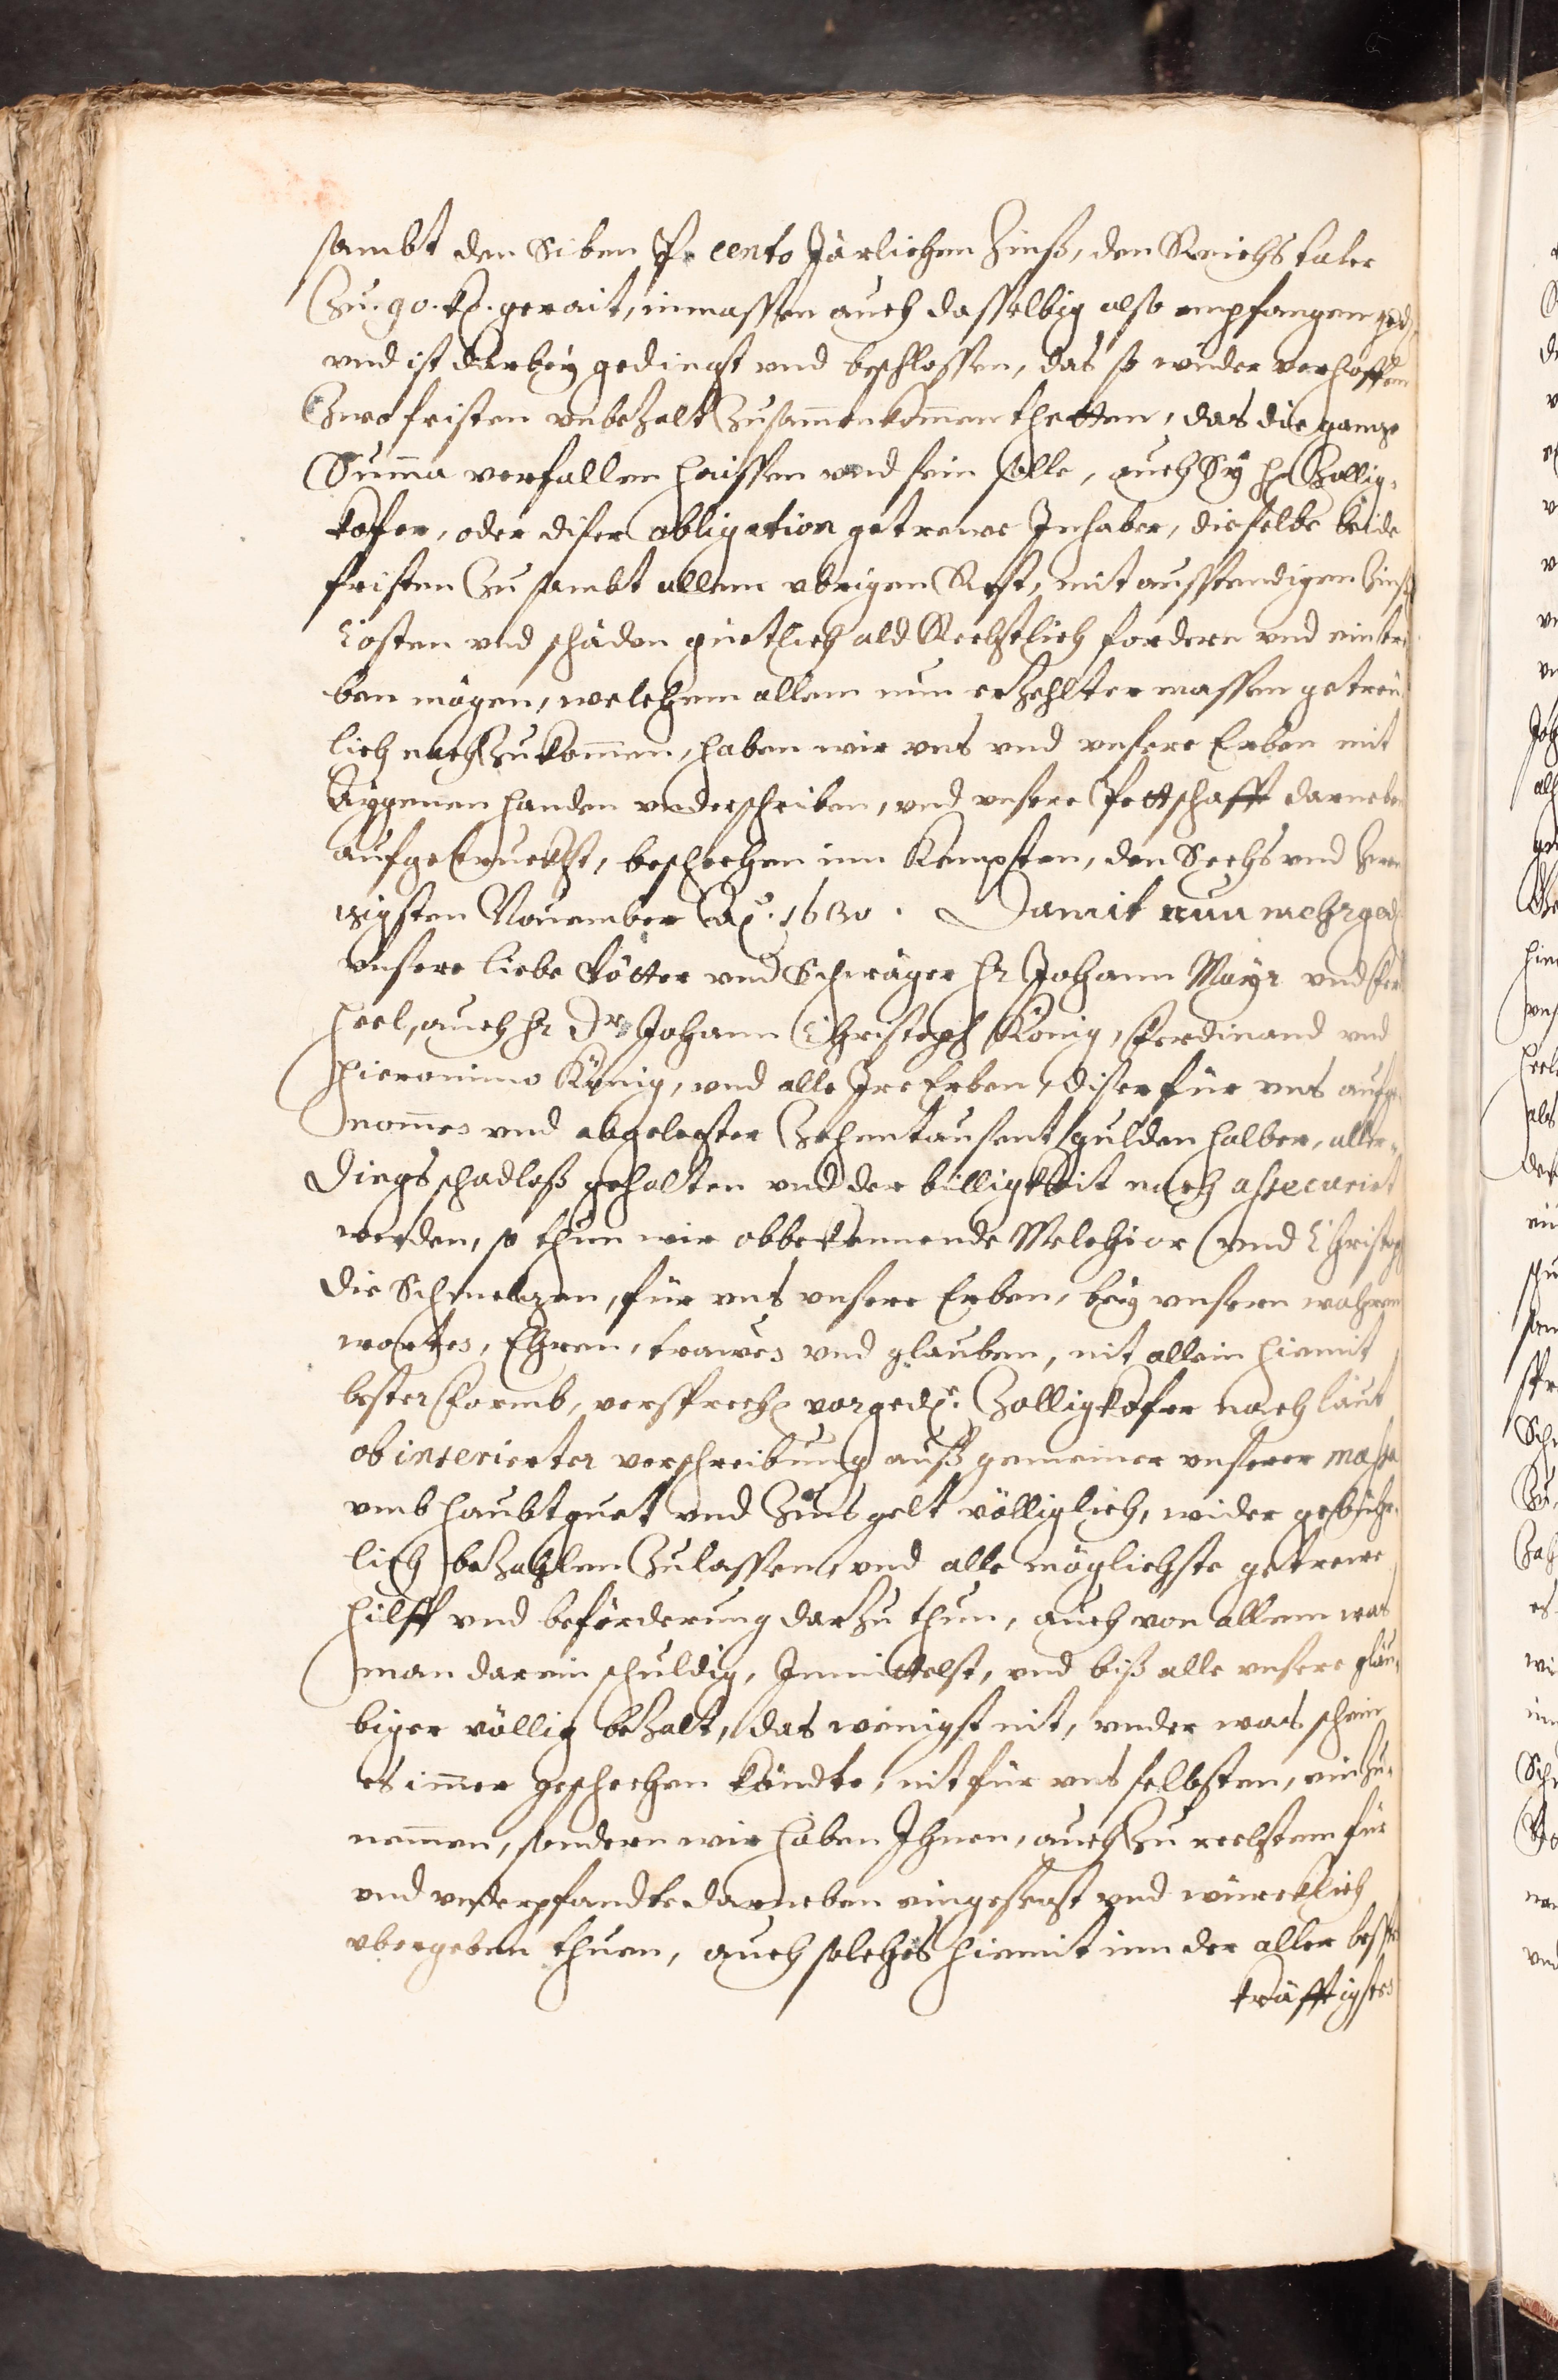 sambt den Siben Pr cento Järlichen Zinß, den Reichstaler
Zu. 90. kr. gerait, inmassen auch dasselbig also empfangen
vnd ist darbey gedingt vnd beschlossen, das so wider verhoffen
Zwo fristen vnbezalt Zusamenkomen thetten, das die gantze
Suma verfallen haissen vnd sein solle, auch Sy hr Zollig-
kofer, oder diser obligation getrewe Inhaber, dieselbe beide
fristen Zusambt allem vbrigen Rest, mit ausstendigen Zinß
Costen vnd schäden güetlich ald Rechtlich fordern vnd eintrei
ben mögen, welchem allem nun erzehltermassen getreü
lich nachzukomen, haben wir vns vnd vnsere Erben mit
Aygenen handen vnderschriben, vnd vnsere Pettschafft darneben
aufgetruckht, beschechen inn Kempten, den Sechs vnd Zwein
zigsten Nouember Ao. 1630. Damit nun mehrged
vnsere liebe Vötter vnd Schwäger hr Johann Mayr vnd
heel, auch hr Dr Johann Christoph König, Ferdinand vnd
Hieronimo König, vnd alle Ire Erben, diser für vns aufge
nomes vnd abgelegter Zehentausent gulden halber, aller-
dings schadloß gehalten vnd der billigkheit nach assecuriert
werden, so thun wir obbekennende Melchior vnd Christoph
die Schmelzen, für vns vnsere Erben, bey vnsern wahren
wortes, Ehren, trawes vnd glauben, nit allein hiemit
bester Formb, versprech vorged. Zolligkofer nach laut
ob inserierter verschreibung auß gemeiner vnserer massa
vmb haubtguet vnd Zinsgelt völliglich, wider
lich bezahlen Zulassen, vnd alle möglichste getrewe
hilff vnd beförderung darzu thun, auch von allem was
man darein schuldig, Inmittelst, vnd biß alle vnsere gläu-
biger völlig bezalt, das wenigst nit, vnder was schein
es imer geschechen köndte, nit für vns selbsten, einzu-
nemen, sondern wir haben Ihnen, auch Zu rechtem für
vnd vnderpfandte darneben eingesezt vnd würcklich
vbergeben thuen, auch solches hiemit inn der aller besste
kräfftigstes